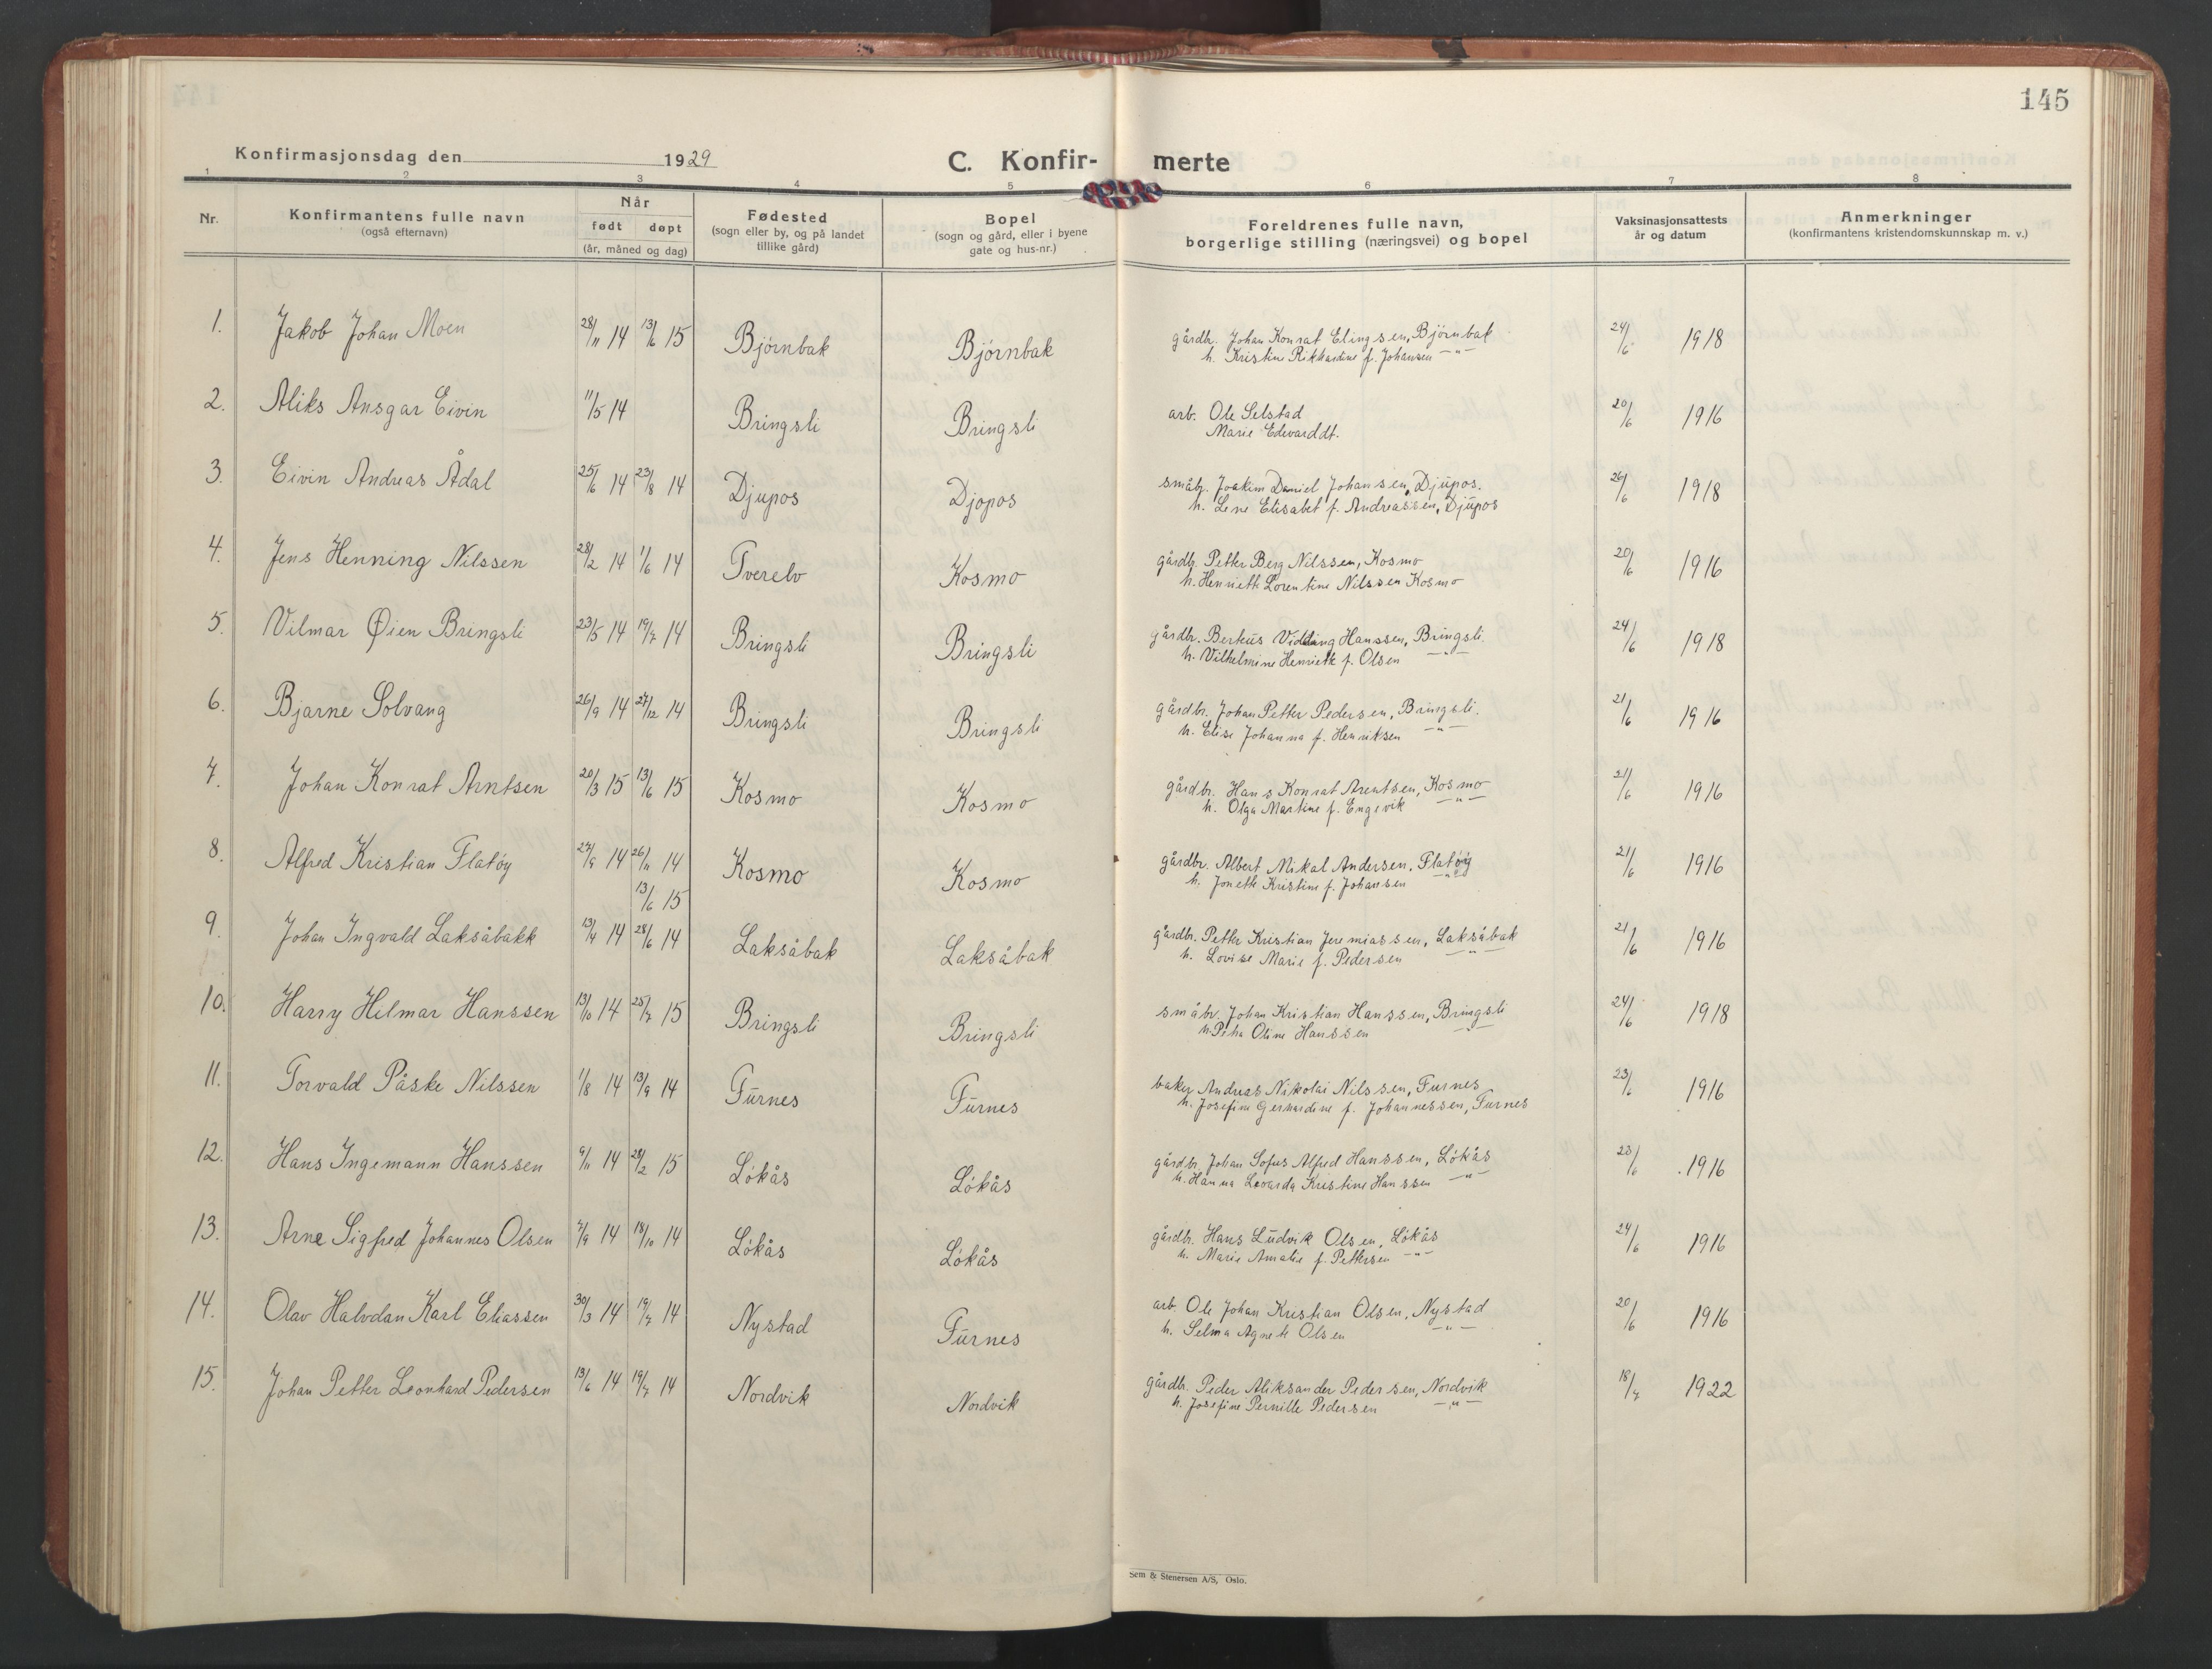 145
Konfirmasjonsdag den 1929
C. Konfir- merte
1 2 3 4 5 6 7 8
Nr.
Konfirmantens fulle navn
(også efternavn)
Når
født døpt
(år, måned og dag)
Fødested
(sogn eller by, og på landet
tillike gård)
Bopel
(sogn og gård, eller i byene
gate og hus-nr.)
Foreldrenes fulle navn,
borgerlige stilling (næringsvei) og bopel
Vaksinasjonsattests
år og datum
Anmerkninger
(konfirmantens kristendomskunnskap m. v.)
1. Jakob Johan Moen 28/11 14 13/6 15 Bjørnbak Bjørnbak gårdbr. Johan Konrat Elingsen, Bjørnbak 24/6 1918
h. Kristine Rikhardine f. Johansen —"—
2. Aliks Ansgar Eivin 11/5 14 Bringsli Bringsli arb. Ole Selstad 20/6 1916
Marie Edevarddt.
3. Eivin Andreas Ådal 25/6 14 23/8 14 Djupos Djopos småbr. Joakim Daniel Johansen, Djupos. 26/6 1918
h. Lene Elisabet f. Andreassen, Djupos
4. Jens Henning Nilssen 28/2 14 1/6 14 Tverelv Kosmo gårdbr. Petter Berg Nilssen, Kosmo 20/6 1916
h. Henriette Lorentine Nilssen Kosmo
5. Vilmar Øien Bringsli 23/5 14 19/7 14 Bringsli Bringsli gårdbr. Berteus Vidding Hanssen, Bringsli. 24/6 1918
h. Vilhelmine Henriette f. Olsen —"—
6. Bjarne Solvang 26/9 14 27/12 14 Bringsli Bringsli gårdbr. Johan Petter Pedersen, Bringsli. 21/6 1916
h. Elise Johanna f. Henriksen —"—
7. Johan Konrat Arntsen 20/3 15 13/6 15 Kosmo Kosmo gårdbr. Hans Konrat Arentsen, Kosmo 21/6 1916
h. Olga Martine f. Engevik —"—
8. Alfred Kristian Flatøy 27/9 14 26/11 14 Kosmo Kosmo gårdbr. Albert Mikal Andersen, Flatøy 21/6 1916
13/6 15 h. Jonette Kristine f. Johansen —"—
9. Johan Ingvald Laksåbakk 13/4 14 28/6 14 Laksåbak Laksåbak gårdbr. Petter Kristian Jeremiassen, Laksåbak 21/6 1916
h. Lovise Marie f. Pedersen —"—
10. Harry Hilmar Hanssen 13/10 14 25/7 15 Bringsli Bringsli småbr. Johan Kristian Hanssen, Bringsli 24/6 1918
h. Petra Oline Hanssen —"—
11. Torvald Påske Nilssen 1/8 14 13/9 14 Furnes Furnes baker Andreas Nikolai Nilssen, Furnes 23/6 1916
h. Josefine Gerhardine f. Johannessen, Furnes
12. Hans Ingemann Hanssen 9/11 14 28/2 15 Løkås Løkås gårdbr. Johan Sofus Alfred Hanssen, Løkås 23/6 1916
h. Hanna Leoarda Kristine Hanssen —"—
13. Arne Sigfred Johannes Olsen 7/9 14 18/10 14 Løkås Løkås gårdbr. Hans Ludvik Olsen, Løkås 24/6 1916
h. Marie Amalie f. Pettersen —"—
14. Olav Halvdan Karl Eliassen 30/3 14 19/7 14 Nystad Furnes arb. Ole Johan Kristian Olsen, Nystad 20/6 1916
h. Selma Agnete Olsen —"—
15. Johan Petter Leonhard Pedersen 13/6 14 19/7 14 Nordvik Nordvik gårdbr. Peder Aliksander Pedersen, Nordvik 18/7 1922
h. Josefine Pernille Pedersen —"—
Sem & Stenersen A/S, Oslo.